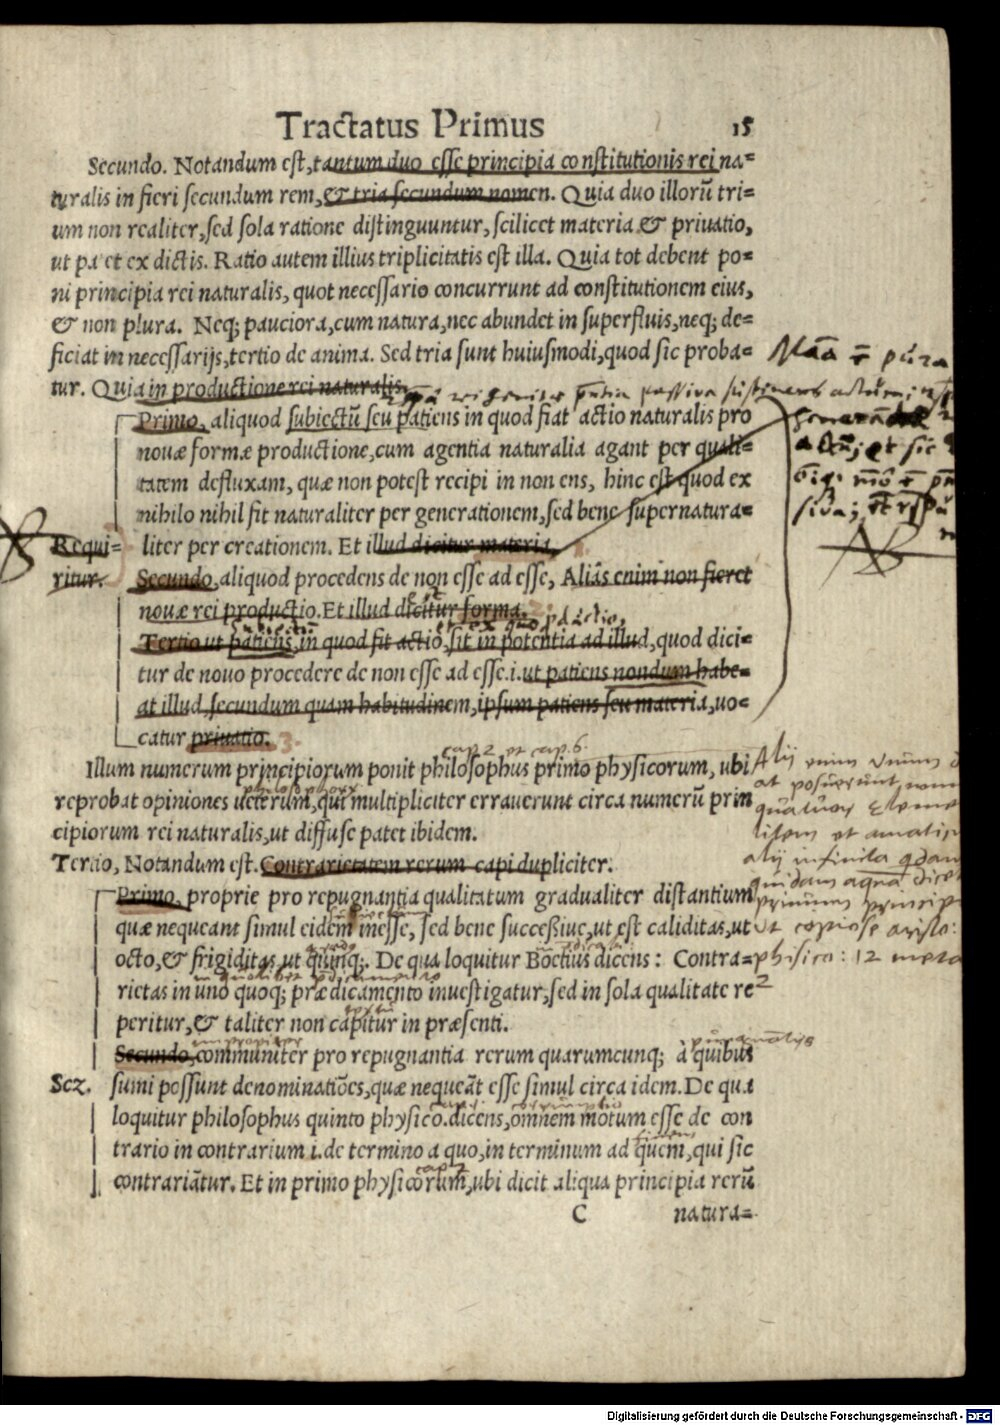 Tractatus Primus 15
Secundo. Notandum est, tantum duo esse principia constitutionis rei na=
turalis in fieri secundum rem, & tria secundum nomen. Quia duo illorũ tri=
um non realiter, sed sola ratione distinguuntur, scilicet materia & priuatio,
ut pa et ex dictis. Ratio autem illius triplicitatis est illa. Quia tot debent po=
ni principia rei naturalis, quot necessario concurrunt ad constitutionem eius,
& non plura. Neq; pauciora, cum natura, nec abundet in superfluis, neq; de=
ficiat in necessarijs, tertio de anima. Sed tria sunt huiusmodi, quod sic proba=
tur. Quia in productione rei naturalis,
Primo, aliquod subiectũ seu patiens in quod fiat actio naturalis pro
nouæ formæ productione, cum agentia naturalia agant per quali=
tatem defluxam, quæ non potest recipi in non ens, hinc est quod ex
nihilo nihil fit naturaliter per generationem, sed bene supernatura=
Requi= liter per creationem. Et illud dicitur materia. 1.
ritur. Secundo, aliquod procedens de non esse ad esse, Aliâs enim non fieret
nouæ rei productio. Et illud dicitur forma. 2.
Tertio ut patiens, in quod fit actio, sit in potentia ad illud, quod dici=
tur de nouo procedere de non esse ad esse .i. ut patiens nondum habe=
at illud, secundum quam habitudinem, ipsum patiens seu materia, uo=
catur priuatio. 3.
cap. 2 et cap. 6.
Illum numerum principiorum ponit philosophus primo physicorum, ubi
reprobat opiniones ueterum, qui multipliciter errauerunt circa numerũ prin
cipiorum rei naturalis, ut diffuse patet ibidem.
Tertio, Notandum est. Contrarietatem rerum capi dupliciter.
Primo, proprie pro repugnantia qualitatum gradualiter distantium
quæ nequeant simul eidem inesse, sed bene successiue, ut est caliditas, ut
octo, & frigiditas, ut quinq;. De qua loquitur Boetius dicens: Contra=
rietas in uno quoq; prædicamento inuestigatur, sed in sola qualitate re
peritur, & taliter non capitur in præsenti.
Secundo, communiter pro repugnantia rerum quarumcunq; à quibus
Scz. sumi possunt denominatiões, quæ nequeãt esse simul circa idem. De qua
loquitur philosophus quinto physico. dicens, omnem motum esse de con
trario in contrarium i. de termino a quo, in terminum ad quem, qui sic
contrariãtur. Et in primo physicorum, ubi dicit aliqua principia rerũ
C natura=
Alij enim unum
at posuerunt
quatuor
litem et
alij infinita
quidam aquã
primum
ut copiose
phisico: 12
Digitalisierung gefördert durch die Deutsche Forschungsgemeinschaft - DFG